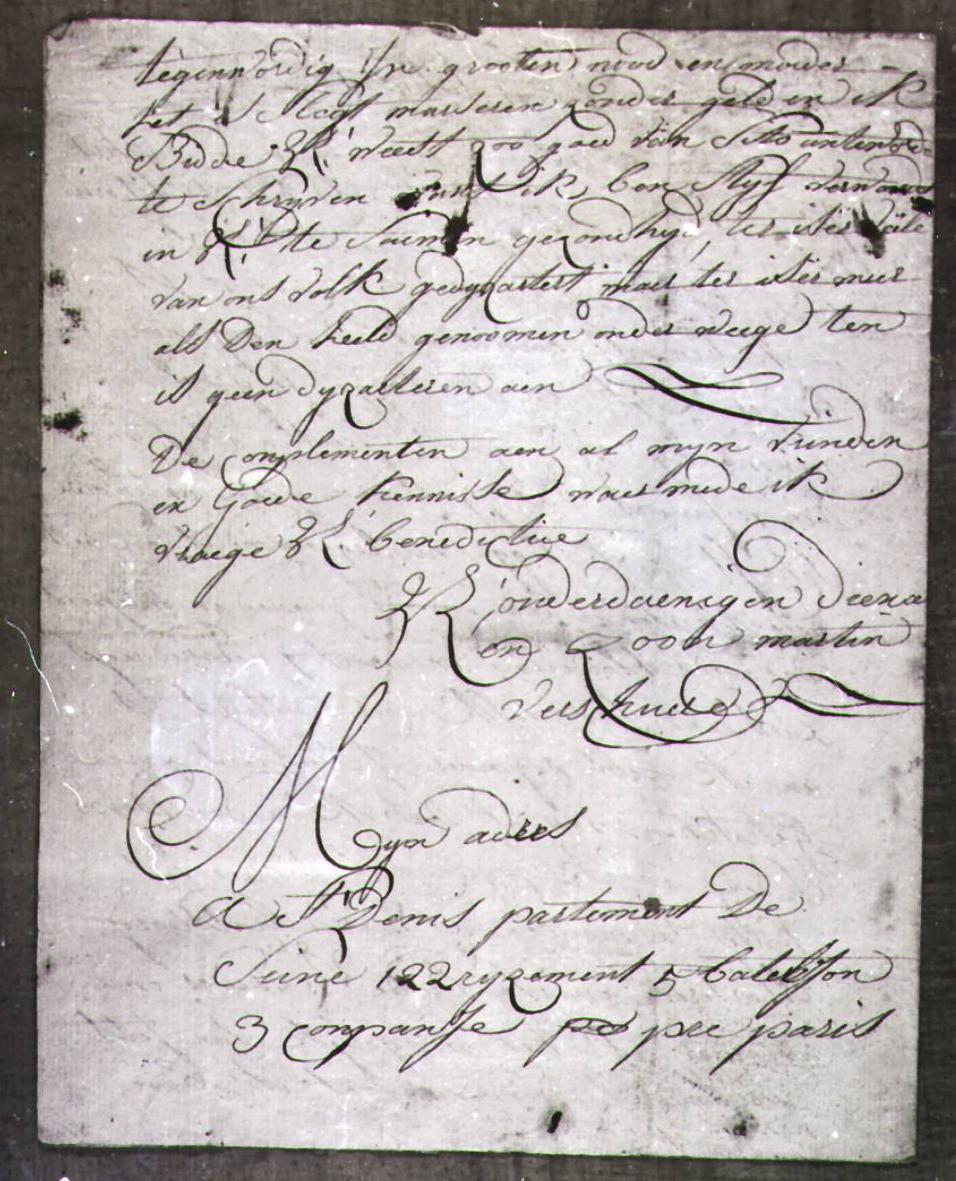 tegenwordig In grooten nood en moeder
het is slegt marseren zonder geld en ik
Bidde UL weest zoo goed van sito antenborde
te schryven want ik ben styf verwondert
in UL te saemen gezondhyd ter is vële
van ons volk gedyzastert maer ter is meer
als Den held genoomen onder weege ten
is geen dyzasteren aen
De complementen aen al myn vrinden
en Goede kennisse waermede ik
vraege UL benedictie
UL onderdaenigen diena
en Zoon martin
Vershuere
Myn adres
A St Denis partement De
Seine 122 ryzement 5 Bateljon
3 companje pre paris